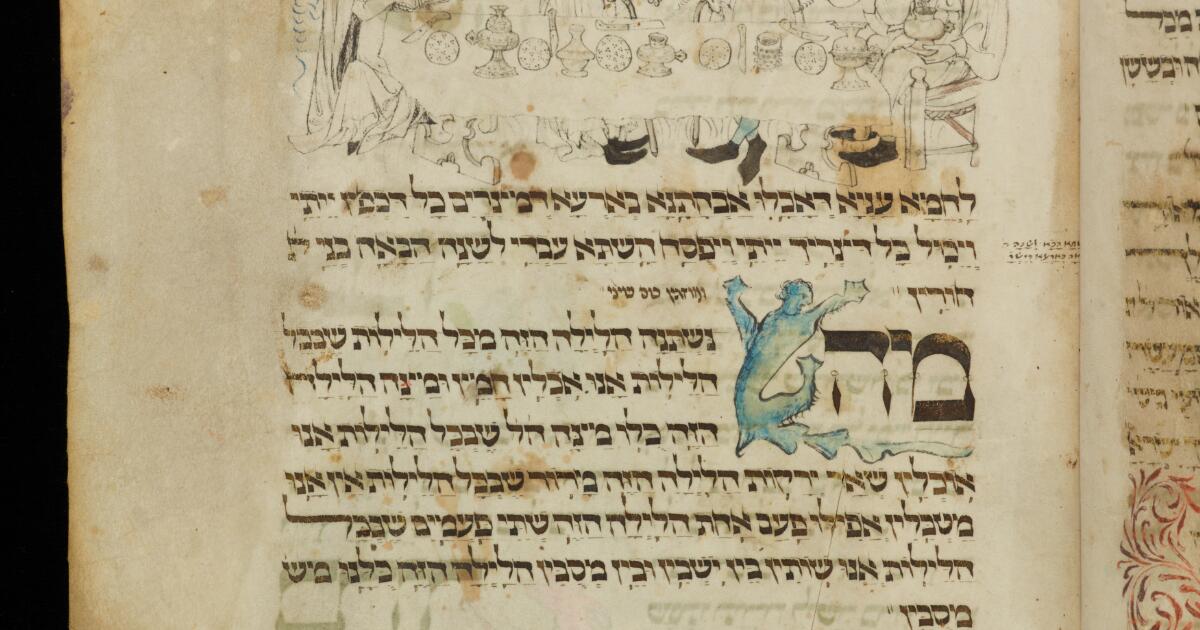 לחמא עניא דאכלו אבהתנא בארעא דמצרים כל דכפין ייתי
ויכול כל דצריך ייתי ויפסח השתא עבדי לשנה הבאה בני ל
חורין
ומוזגין כוס שיני
מה נשתנה הלילה הזה מכל הלילות שבכל
הלילות אנו אכלין חמץ ומצה הלילה
הזה כלו מצה הל שבכל הלילות אנו
אוכלין שאר ירקות הלילה הזה מרור שבכל הלילות אין אנו
מטבלין אפילו פעם אחת הלילה הזה שתי פעמים שבכל
הלילות אנו שותין בין ישבין ובין מסבין הלילה הזה כלנו מש
מסבין